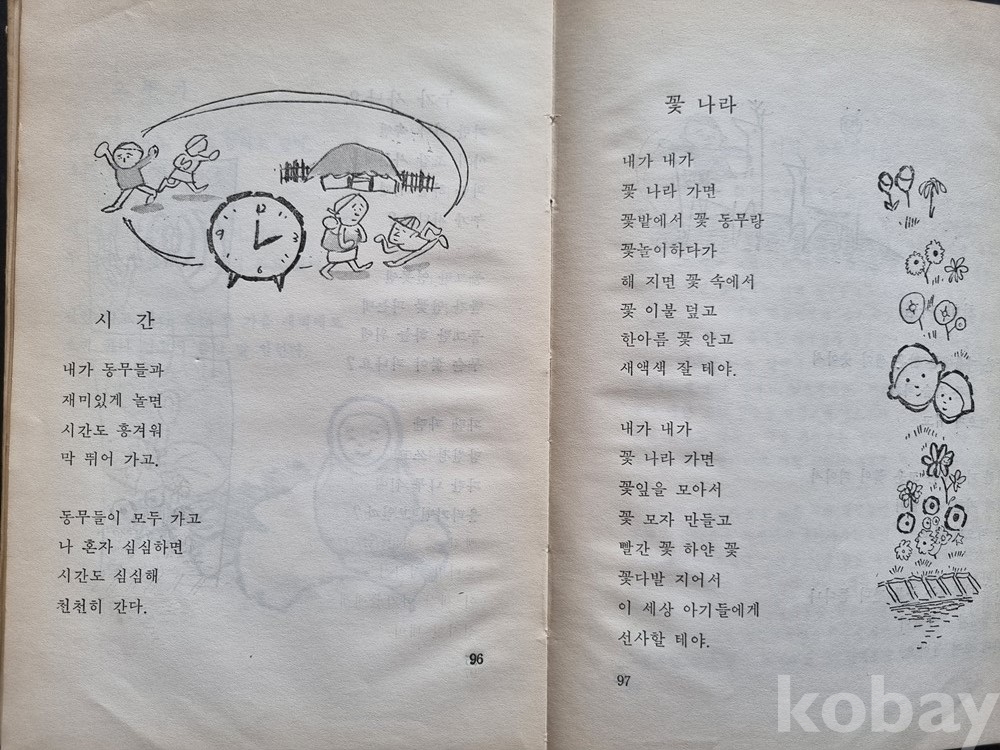 12
3
6
9
시 간
내가 동무들과
재미있게 놀면
시간도 흥겨워
막 뛰어 가고.
동무들이 모두 가고
나 혼자 심심하면
시간도 심심해
천천히 간다.
96
꽃 나라
내가 내가
꽃 나라 가면
꽃밭에서 꽃 동무랑
꽃놀이하다가
해 지면 꽃 속에서
꽃 이불 덮고
한아름 꽃 안고
새액색 잘 테야.
내가 내가
꽃 나라 가면
꽃잎을 모아서
꽃 모자 만들고
빨간 꽃 하얀 꽃
꽃다발 지어서
이 세상 아기들에게
선사할 테야.
97
kobay